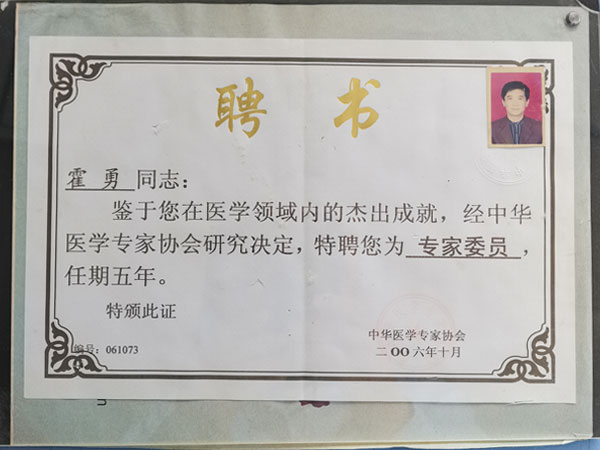 聘书
霍勇同志：
鉴于您在医学领域内的杰出成就，经中华
医学专家协会研究决定，特聘您为专家委员，
任期五年。
特颁此证
中华医学专家协会
二OO六年十月
编号：061073